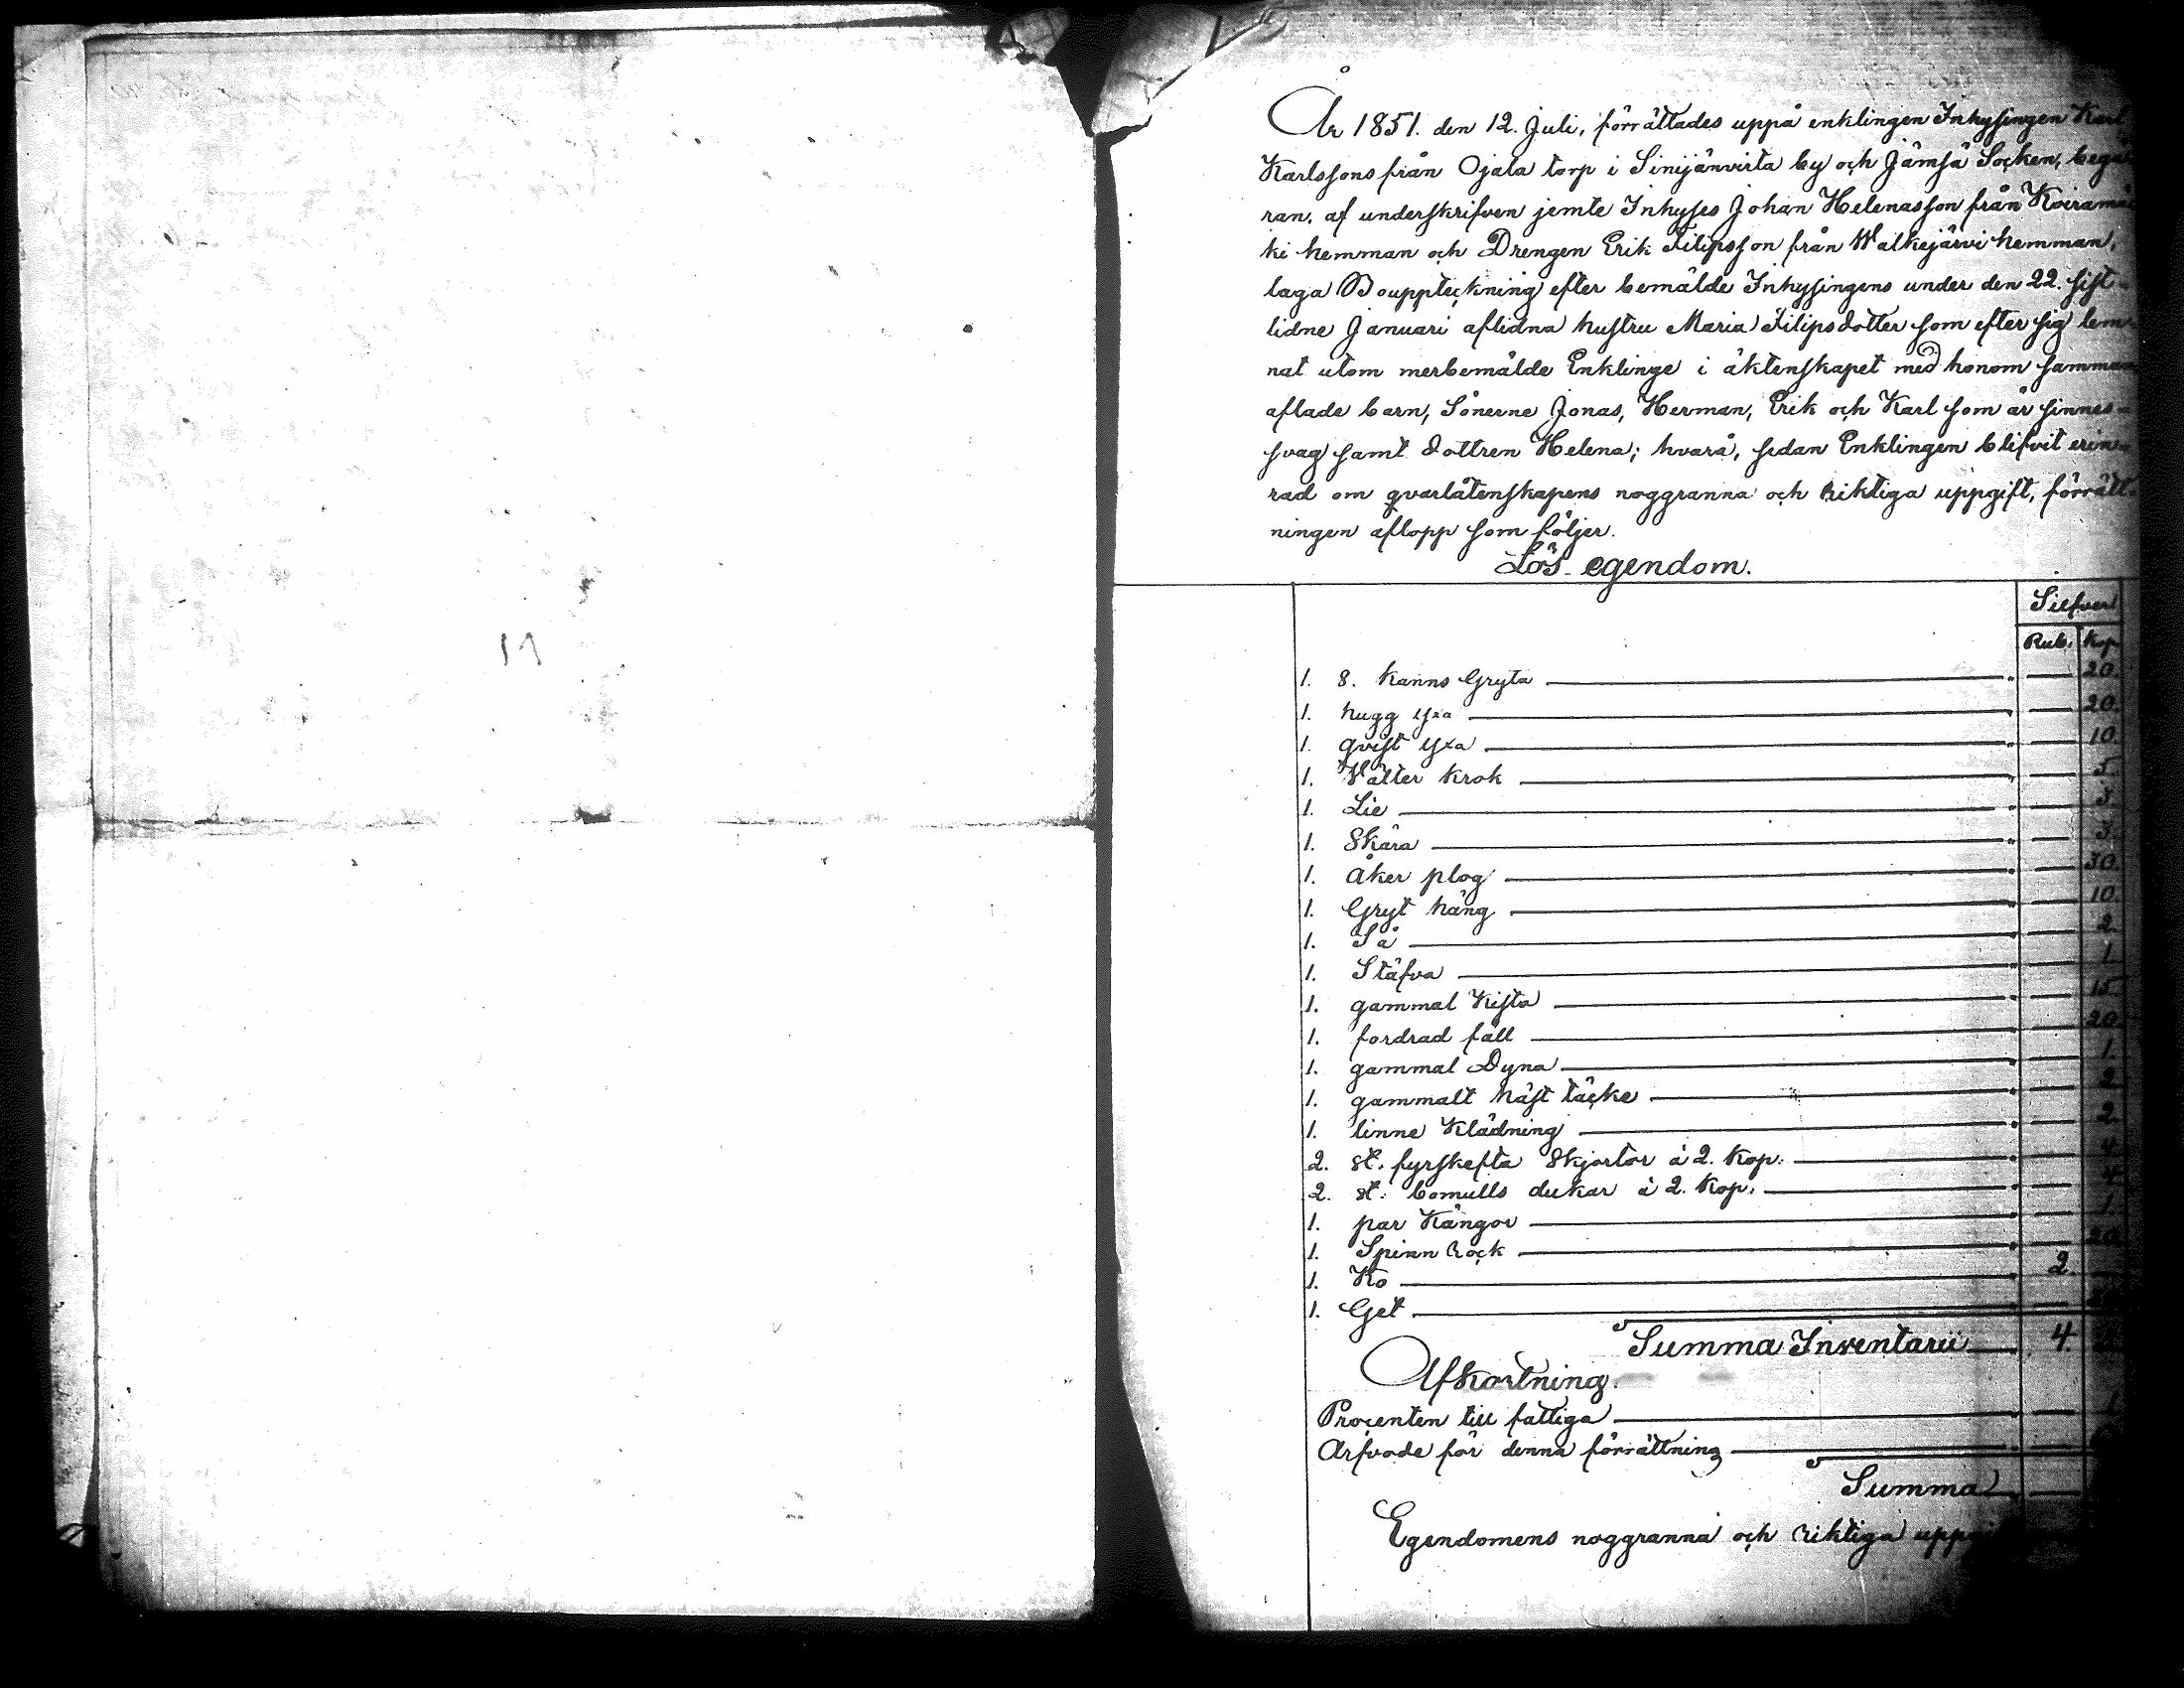 År 1851. den 12. Juli, förrättades uppå enklingen Inhysingen Karl
Karlssons från Ojala torp i Sinijänvirta by och Jämsä Socken, begä-
ran, af underskrifven jemte Inhyses Johan Helenasson från Koiramä-
ki hemman och Drengen Erik Filipsson från Walkejärvi hemman,
laga Boupptekning efter bemälde Inhysingens under den 22. sist-
lidne Januari aflidna hustru Maria Filipsdotter som efter sig lem-
nat utom merbemälde Enklinge i äktenskapet med honom samman
aflade barn, Sönerne Jonas, Herman, Erik och Karl som är sinnes-
svag samt dottren Helena; hvarå, sedan Enklingen blifvit erin-
rad om qvarlåtenskapens noggranna och riktiga uppgift, förrätt-
ningen aflopp som följer.
Lös egendom.
Silfver
Rub. Kop.
1. 8. Kanns Gryta 20.
1. hugg yxa 20.
1. qvist yxa 10.
1. Välter krok 5.
1. Lie 3.
1. Skära 3.
1. Åker plog 30.
1. Gryt häng 10.
1. Så 2.
1. Stäfva 1.
1. gammal Kista 15
1. fordrad fäll 20.
1. gammal Dyna 1.
1. gammalt häst täcke 2.
1. linne Klädning 2.
2. st. fyrskefta Skjortor à 2. Kop. 4.
2. st. bomulls dukar à 2. Kop. 4.
1. par Kängor 1.
1. Spinn Rock 20.
1. Ko 2.
1. Get
Summa Inventarii 4.
Afkortning.
Procenten till fattiga 1.
Arfvode för denna förrättning
Summa
Egendomens noggranna och riktiga